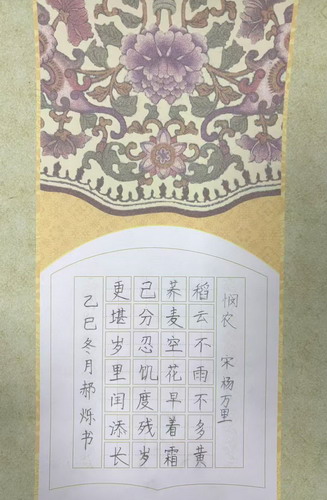 悯农 宋 杨万里
稻云不雨不多黄
荞麦空花早着霜
已分忍饥度残岁
更堪岁里闰添长
乙巳冬月郝烁书